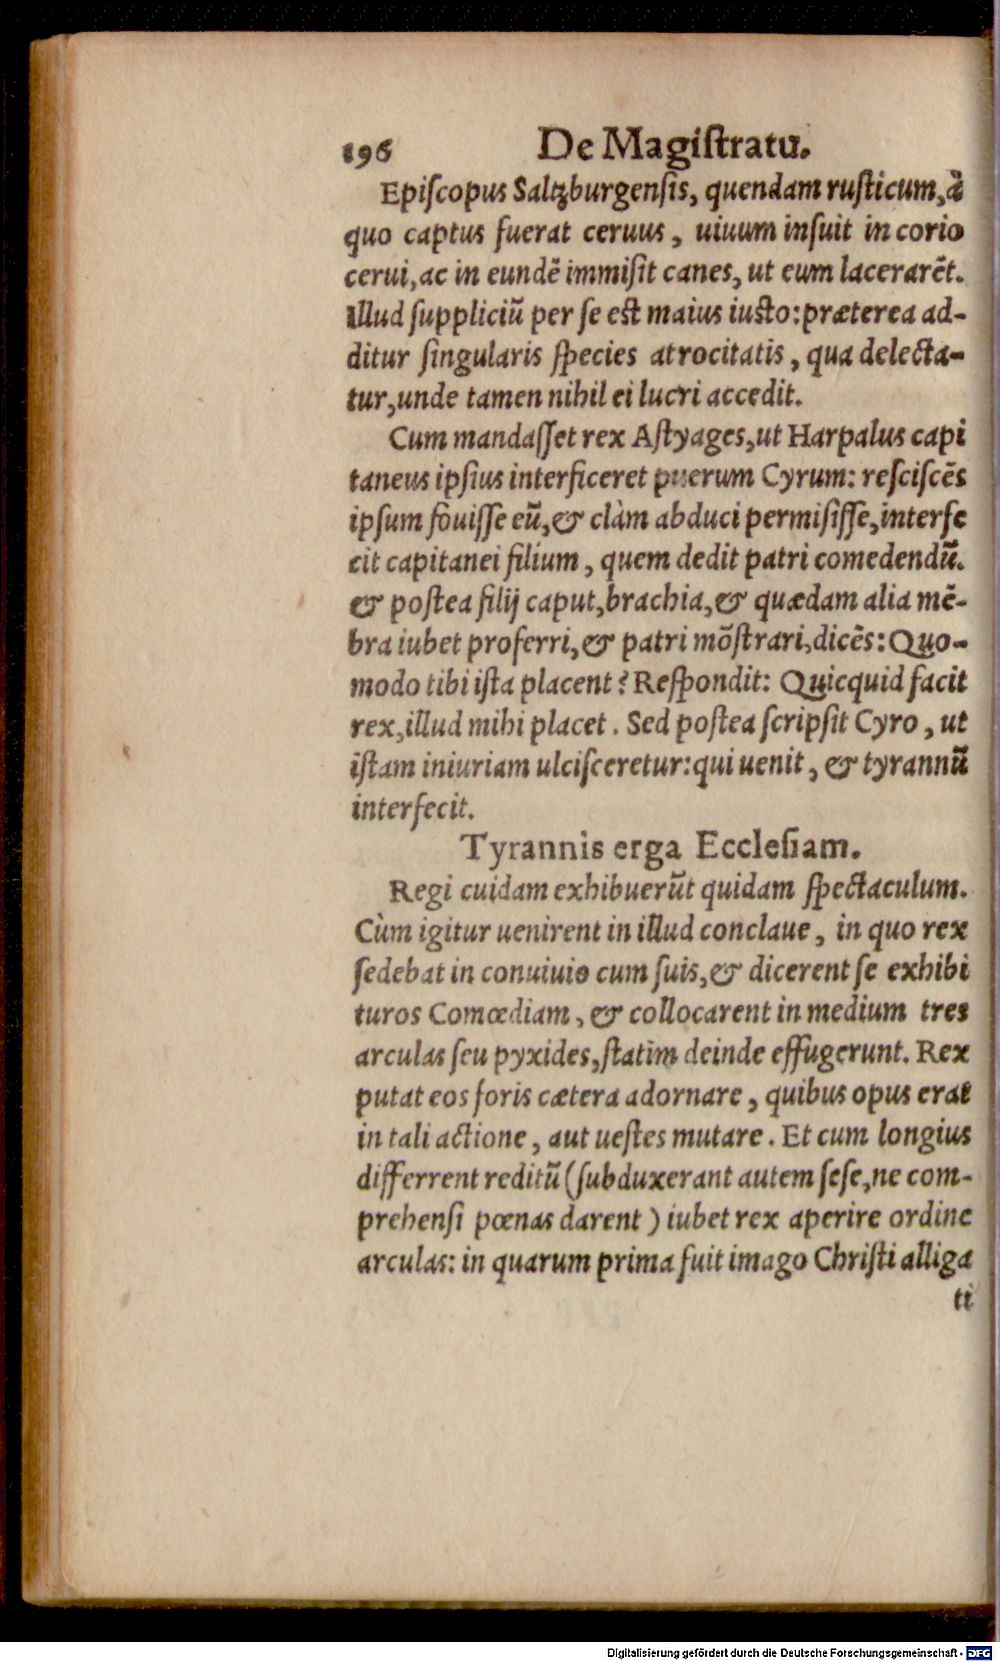 196 De Magiſtratu.
Epiſcopus Saltzburgenſis, quendam ruſticum, à
quo captus fuerat ceruus, uiuum inſuit in corio
cerui, ac in eundē immiſit canes, ut eum lacerarēt.
Illud ſuppliciū per ſe est maius iusto: præterea ad-
ditur ſingularis ſpecies atrocitatis, qua delecta-
tur, unde tamen nihil ei lucri accedit.
Cum mandaſſet rex Aſtyages, ut Harpalus capi
taneus ipſius interficeret puerum Cyrum: reſciſcēs
ipſum fouiſſe eū, & clàm abduci permiſiſſe, interfe
cit capitanei filium, quem dedit patri comedendū.
& poſtea filij caput, brachia, & quædam alia mē-
bra iubet proferri, & patri mōſtrari, dicēs: Quo-
modo tibi iſta placent? Reſpondit: Quicquid facit
rex, illud mihi placet. Sed poſtea ſcripſit Cyro, ut
iſtam iniuriam ulciſceretur: qui uenit, & tyrannū
interfecit.
Tyrannis erga Eccleſiam.
Regi cuidam exhibuerūt quidam ſpectaculum.
Cùm igitur uenirent in illud conclaue, in quo rex
ſedebat in conuiuio cum ſuis, & dicerent ſe exhibi
turos Comœdiam, & collocarent in medium tres
arculas ſeu pyxides, ſtatim deinde effugerunt. Rex
putat eos foris cætera adornare, quibus opus erat
in tali actione, aut ueſtes mutare. Et cum longius
differrent reditū (ſubduxerant autem ſeſe, ne com-
prehenſi pœnas darent) iubet rex aperire ordine
arculas: in quarum prima fuit imago Chriſti alliga
ti
Digitalisierung gefördert durch die Deutsche Forschungsgemeinschaft - DFG